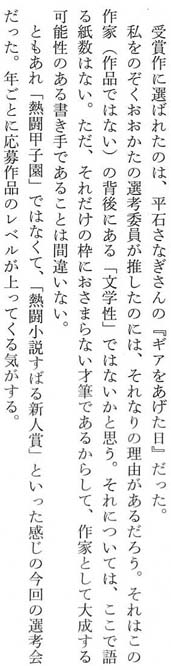 受賞作に選ばれたのは、平石さなぎさんの『ギアをあげた日』だった。
私をのぞくおおかたの選考委員が推したのには、それなりの理由があるだろう。それはこの
作家（作品ではない）の背後にある「文学性」ではないかと思う。それについては、ここで語
る紙数はない。ただ、それだけの枠におさまらない才筆であるからして、作家として大成する
可能性のある書き手であることは間違いない。
ともあれ「熱闘甲子園」ではなくて、「熱闘小説すばる新人賞」といった感じの今回の選考会
だった。年ごとに応募作品のレベルが上ってくる気がする。